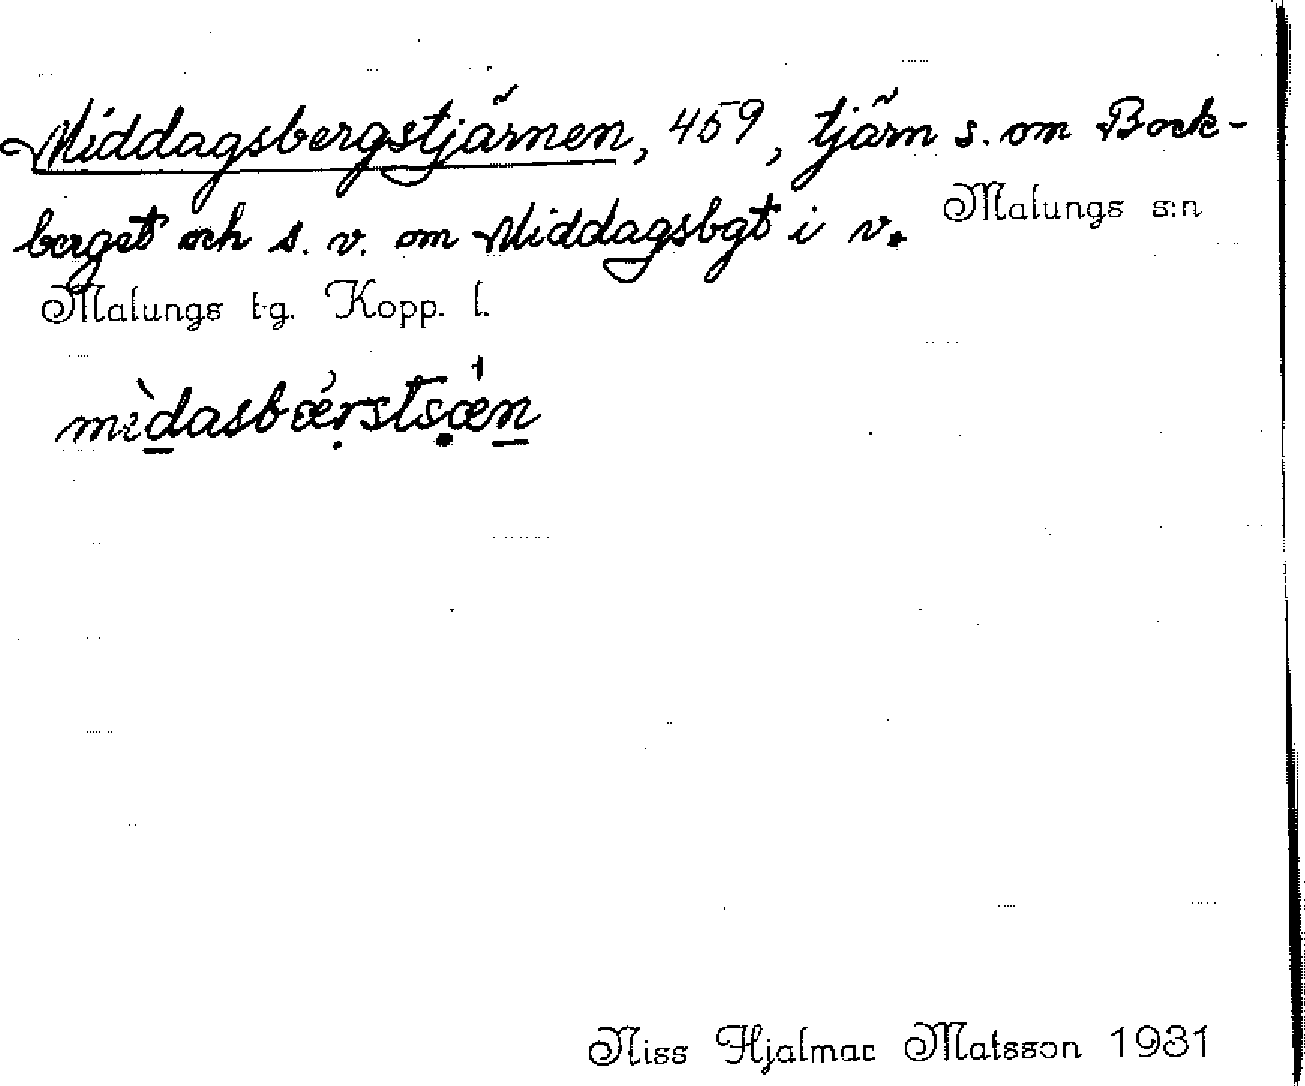 Middagsbergstjärnen, 459, tjärn s. om Bock-
berget och s. v. om Middagsbgt i v.
Malungs s:n
Malungs tg. Kopp. l.
mìdasbǽrstsǽn
Niss Hjalmar Matsson 1931